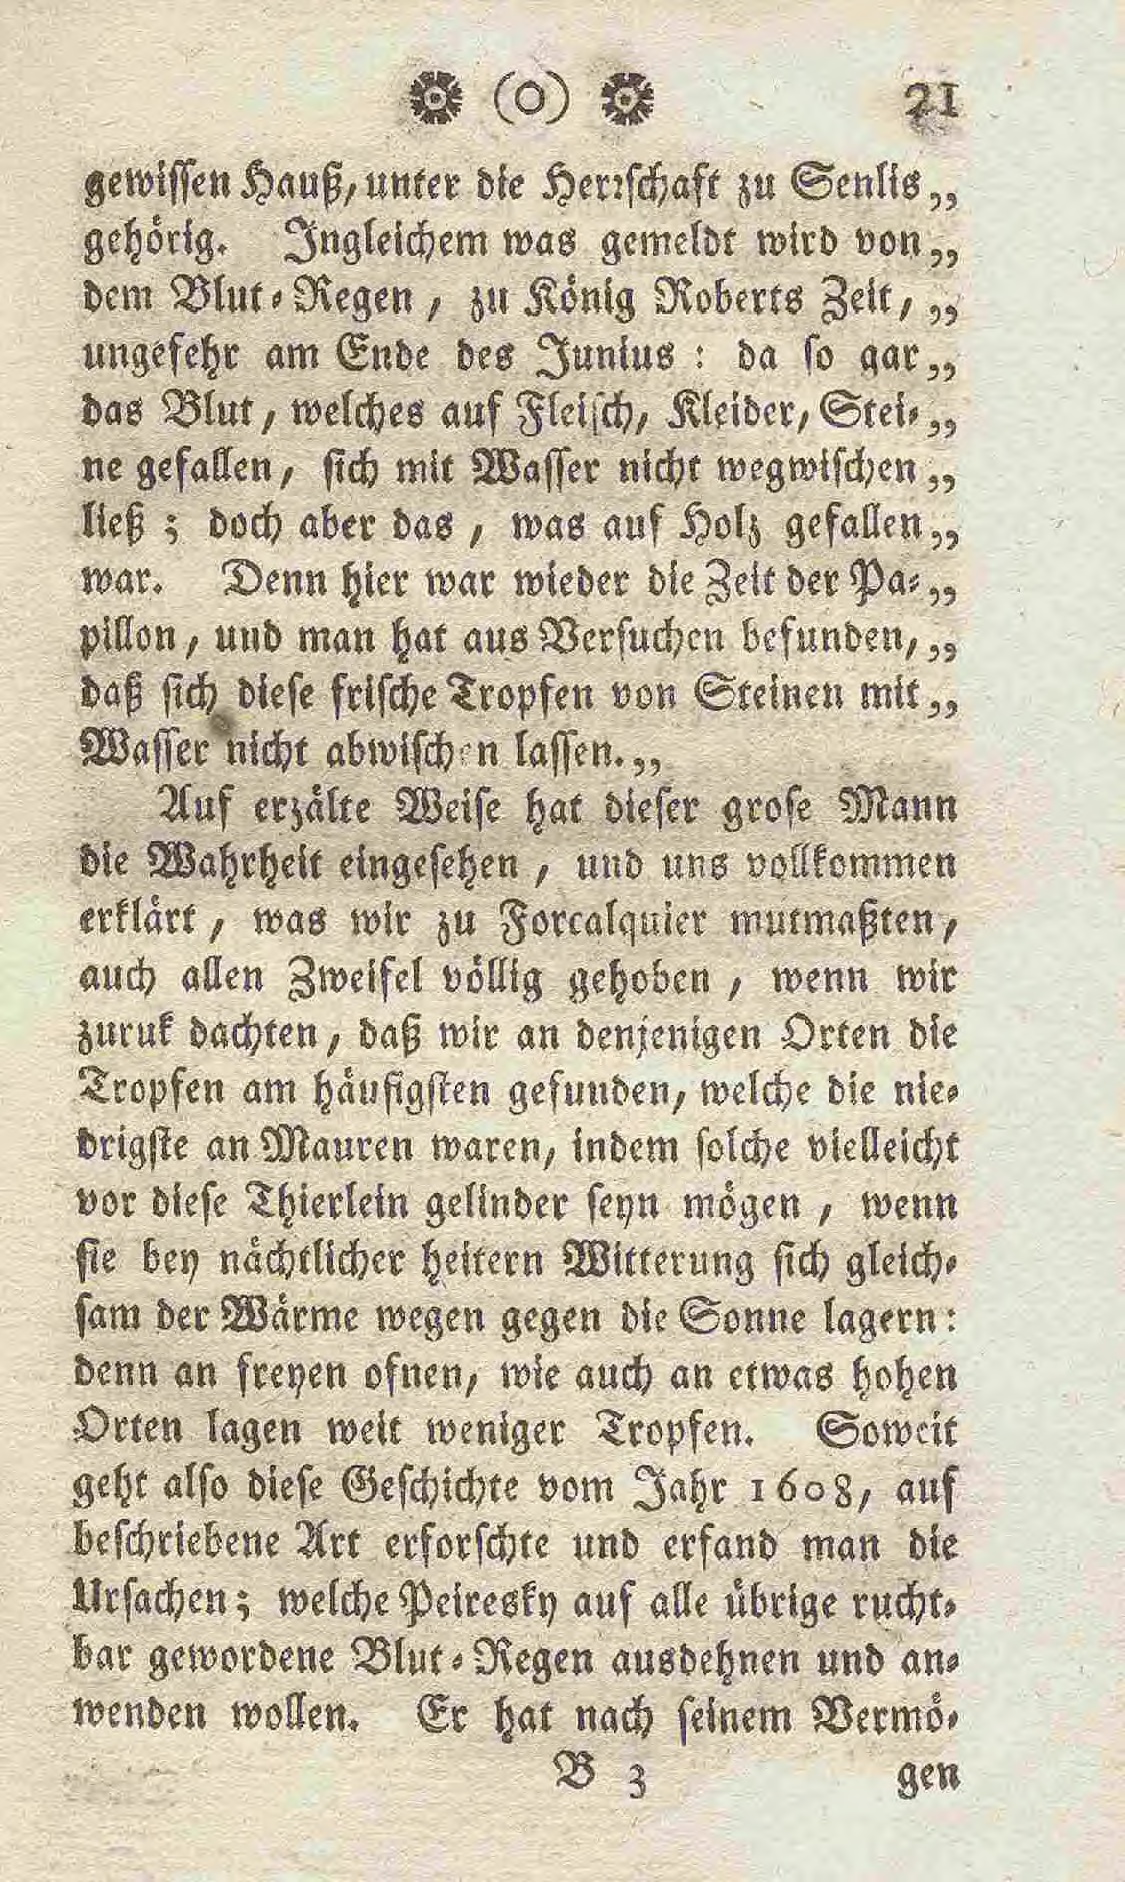 (O) 21
gewissen Hauß, unter die Herrschaft zu Senlis„
gehörig. Ingleichem was gemeldt wird von„
dem Blut-Regen, zu König Roberts Zeit,„
ungefehr am Ende des Junius: da so gar„
das Blut, welches auf Fleisch, Kleider, Stei-„
ne gefallen, sich mit Wasser nicht wegwischen„
ließ; doch aber das, was auf Holz gefallen„
war. Denn hier war wieder die Zeit der Pa-„
pillon, und man hat aus Versuchen befunden,„
daß sich diese frische Tropfen von Steinen mit„
Wasser nicht abwischen lassen.„
Auf erzälte Weise hat dieser grose Mann
die Wahrheit eingesehen, und uns vollkommen
erklärt, was wir zu Forcalquier mutmaßten,
auch allen Zweifel völlig gehoben, wenn wir
zuruk dachten, daß wir an denjenigen Orten die
Tropfen am häufigsten gefunden, welche die nie-
drigste an Mauren waren, indem solche vielleicht
vor diese Thierlein gelinder seyn mögen, wenn
sie bey nächtlicher heitern Witterung sich gleich-
sam der Wärme wegen gegen die Sonne lagern:
denn an freyen ofnen, wie auch an etwas hohen
Orten lagen weit weniger Tropfen. Soweit
geht also diese Geschichte vom Jahr 1608, auf
beschriebene Art erforschte und erfand man die
Ursachen; welche Peiresky auf alle übrige rucht-
bar gewordene Blut-Regen ausdehnen und an-
wenden wollen. Er hat nach seinem Vermö-
B 3 gen